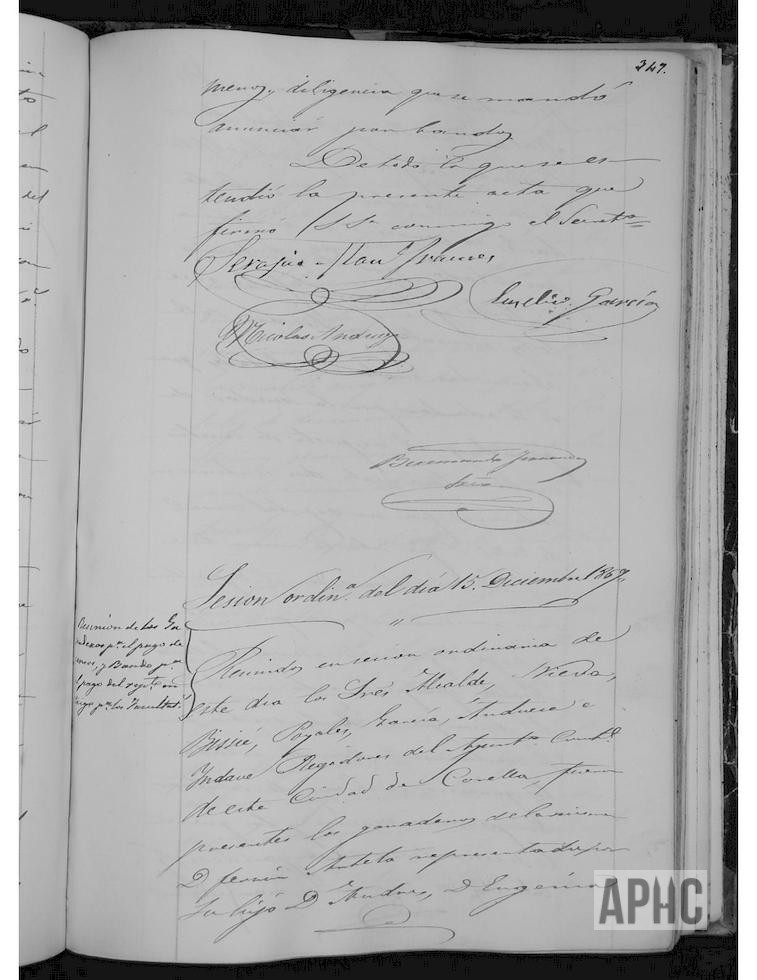 347.
menos, diligencia que se mandó
anunciar por bando.
De todo lo que se es-
tendió la presente acta que
firmó S Sa conmigo el Secreto
Serapio San Juan
Eusebio García
Nicolas Andueza
Sesion ordina del día 15 Diciembre 1867,
Reunion de los Ga-
naderos pa el pago de
y Bando pa
pago del
pr los
Reunidos en sesion ordinaria de
este dia los Sres Alcalde, Nieva,
Bissié, Poyales, García, Andueza e
Yndave Regidores del Ayunto Constl
de esta Ciudad de Corella, fueron
presentes los ganaderos de la misma
D fermin representado por
su hijo D Andres, D Eugenio
APHC